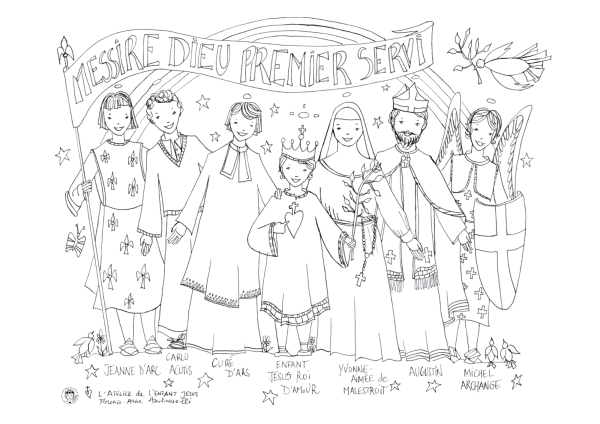 MESSIRE DIEU PREMIER SERVI
JEANNE D'ARC
CARLO
ACUTIS
CURÉ
D'ARS
ENFANT
JÉSUS ROI
D'AMOUR
YVONNE-
AIMÉE de
MALESTROIT
AUGUSTIN
MICHEL
ARCHANGE
L'Atelier de l'Enfant Jésus